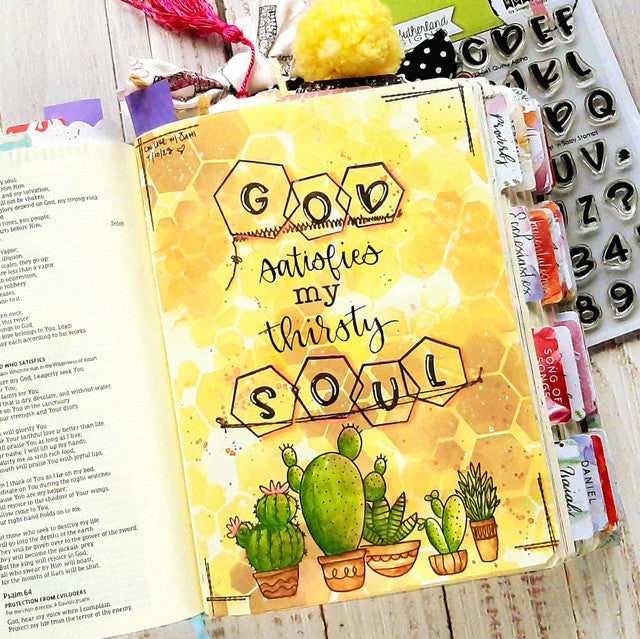 y soul,
from Him.
and my salvation,
will not be shaken.
glory depend on God, my strong rock.
d times, you people;
arts before Him. Selah
vapor;
illusion.
scales, they go up;
are less than a vapor.
n oppression,
robbery
eases,
on to it.
ken once,
this twice:
ongs to God,
love belongs to You, Lord.
ay each according to his works
D WHO SATISFIES
When he was in the Wilderness of Judah
are my God, I eagerly seek You.
r You,
faints for You
d that is dry, desolate, and without water.
on You in the sanctuary
our strength and Your glory.
will glorify You
se Your faithful love is better than life.
ill praise You as long as I live;
r name, I will lift up my hands.
atisfy me as with rich food,
outh will praise You with joyful lips.
n I think of You as I lie on my bed,
ditate on You during the night watches
ause You are my helper;
will rejoice in the shadow of Your wings.
ollow close to You;
ur right hand holds on to me.
But those who seek to destroy my life
ill go into the depths of the earth.
They will be given over to the power of the sword;
They will become the jackals' prey.
But the king will rejoice in God;
all who swear by Him will boast,
for the mouths of liars will be shut.
Psalm 64
PROTECTION FROM EVILDOERS
For the choir director. A Davidic psalm.
God, hear my voice when I complain.
Protect my life from the terror of the enemy.
GOD
satisfies
my
thirsty
SOUL
Proverbs
Ecclesiastes
SONG OF SONGS
Isaiah
Lamentations
DANIEL
Sutherland